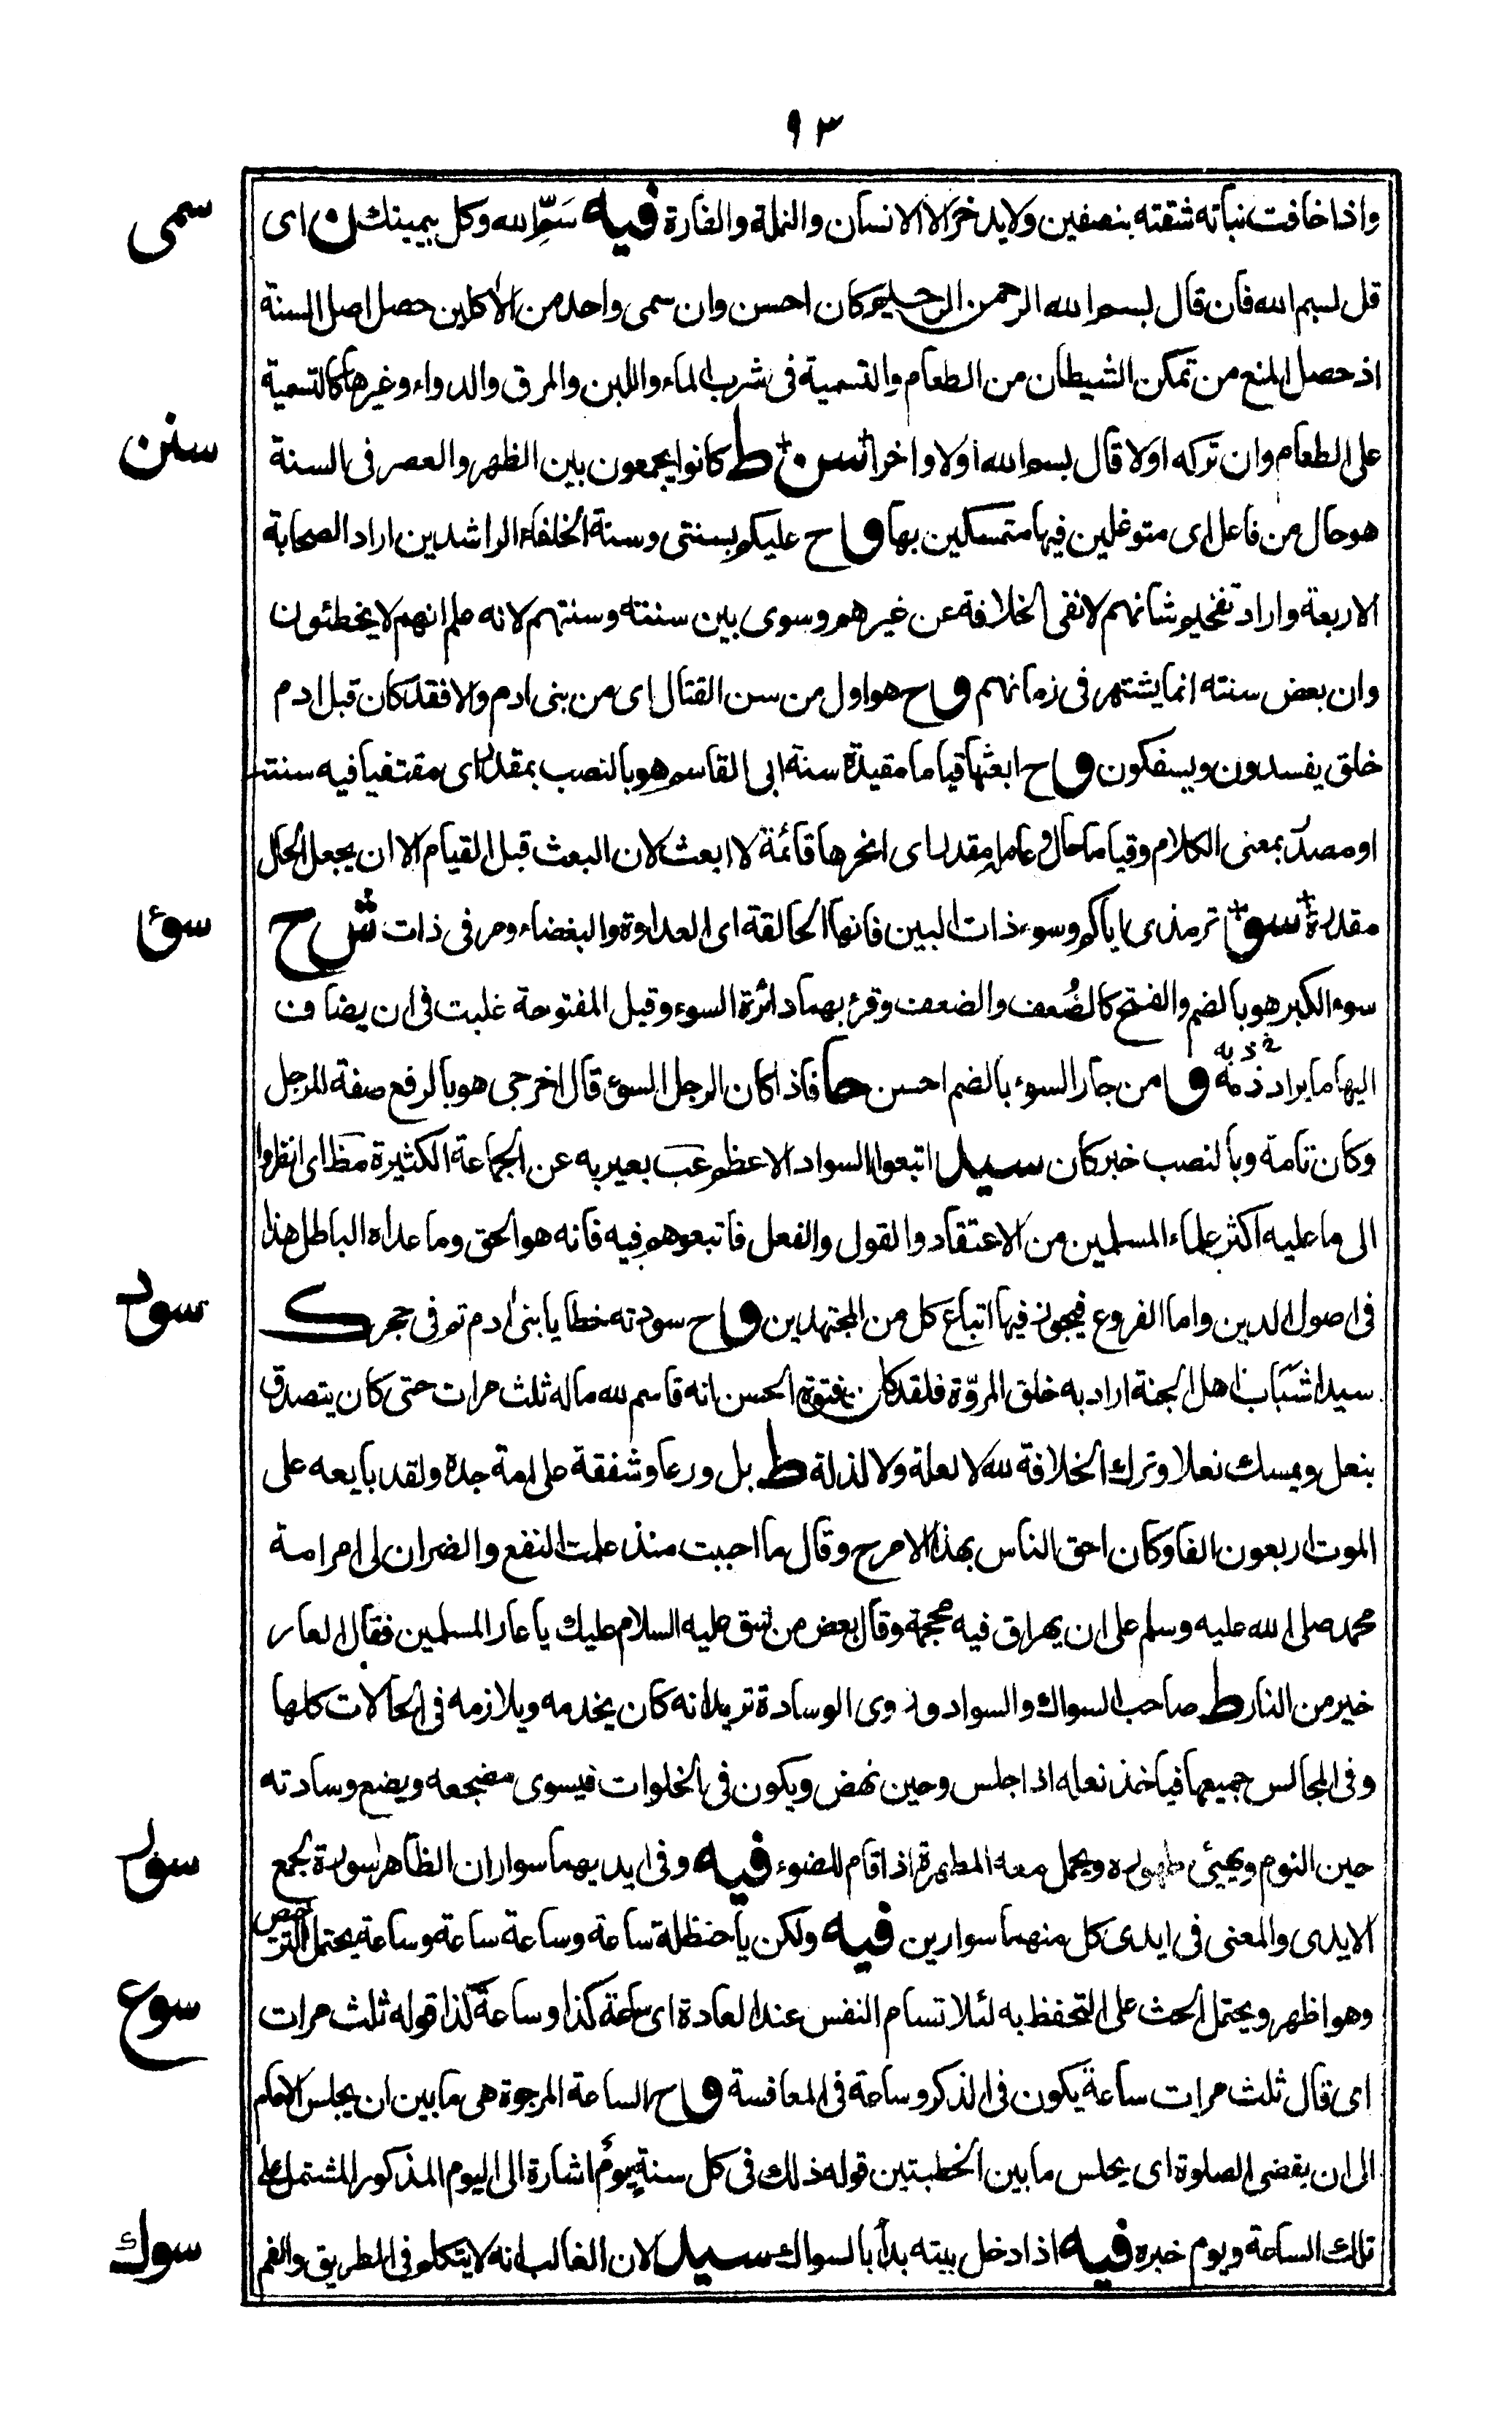 ٩٣
واذا خافت نباته شقته بنصفين ولا يدخر الا الانسان والنملة والفارة فيه سَمِّ الله وكل بيمينك ن اى
سمى
قل بسم الله فان قال بسم الله الرحمن الرحيم كان احسن وان سمى واحد من الأكلين حصل اصل السنة
اذ حصل المنع من تمكن الشيطان من الطعام والتسمية فى شرب الماء واللبن والمرق والدواء وغيرها كالتسمية
على الطعام وان تركه اولا قال بسم الله اولا واخرا سن ط كانوا يجمعون بين الظهر والعصر فى السنة
سنن
هو حال من فاعل اى متوغلين فيها متمسكين بها و ح عليكم بسنتى وسنة الخلفاء الراشدين اراد الصحابة
الاربعة واراد تفخيم شانهم لا نفى الخلافة عن غيرهم وسوى بين سنته وسنتهم لانه علم انهم لا يخطئون
وان بعض سنته انما يشتهر فى زمانهم و ح هو اول من سن القتال اى من بنى ادم والا فقد كان قبل ادم
خلق يفسدون ويسفكون و ح ابعثها قياما مقيدة سنة ابى القاسم هو بالنصب بمقدر اى مقتفيا فيه سنته
او مصدر بمعنى الكلام وقياما حال وعامله مقدر اى انحرها قائمة لا ابعث لان البعث قبل القيام الا ان يجعل الحال
مقدرة سوء ترمذى اياكم وسوء ذات البين فانها الحالقة اى العداوة والبغضاء ومر فى ذات ش ح
سوء
سوء الكبر هو بالضم والفتح كالضُعف والضعف وقرئ بهما دائرة السوء وقبل المفتوحة غلبت فى ان يضاف
اليها ما يراد ذمه و ا من جار السوء بالضم احسن حا فاذا كان الرجل السوء قال اخرجى هو بالرفع صفة للرجل
وكان تامة وبالنصب خبر كان سيد اتبعوا السواد الاعظم عب يعبر به عن الجماعة الكثيرة مظ اى انظروا
الى ما عليه اكثر علماء المسلمين من الاعتقاد والقول والفعل فاتبعوهم فيه فانه هو الحق وما عداه الباطل هذا
فى اصول الدين واما الفروع فيجوز فيها اتباع كل من المجتهدين و ح سودته خطايا بنى ادم تو فى حجر ك
سود
سيدا شباب اهل الجنة اراد به خلق المروّة فلقد كان من فتوة الحسن انه قاسم لله ماله ثلث مرات حتى كان يتصدق
بنعل ويمسك نعلا وترك الخلافة لله لا لعلة ولا لذلة ط بل ورعا وشفقة على امة جده ولقد بايعه على
الموت اربعون الفا وكان احق الناس بهذا الامر ح وقال ما احببت منذ علمت النفع والضر ان لى امر امة
محمد صلى الله عليه وسلم على ان يهراق فيه محجمة وقال بعض من شق عليه السلام عليك يا عار المسلمين فقال العار
خير من النار ط صاحب السواك والسواد وروى الوسادة تريد انه كان يخدمه ويلازمه فى الحالات كلها
وفى المجالس جميعها فياخذ نعله اذا جلس وحين نهض ويكون فى الخلوات فيسوى مضجعه ويضع وسادته
حين النوم ويهيئ طهوره ويحمل معه المطهرة اذا قام للوضوء فيه وفى ايديهما سواران الظاهر اسورة لجمع
سور
الايدى والمعنى فى ايدى كل منهما سوارين فيه ولكن يا حنظلة ساعة وساعة ساعة وساعة يحتمل الترخيص
وهو اظهر ويحتمل الحث على التحفظ به لئلا تسام النفس عند العادة اى ساعة كذا وساعة كذا قوله ثلث مرات
سوع
اى قال ثلث مرات ساعة يكون فى الذكر وساعة فى المعافسة و ح الساعة المرجوة هى ما بين ان يجلس الامام
الى ان يقضى الصلوة اى يجلس ما بين الخطبتين قوله ذلك فى كل سنة يوم اشارة الى اليوم المذكور المشتمل على
تلك الساعة ويوم خبره فيه اذا دخل بيته بدأ بالسواك سيد لان الغالب انه لا يتكلم فى الطريق والفم
سوك